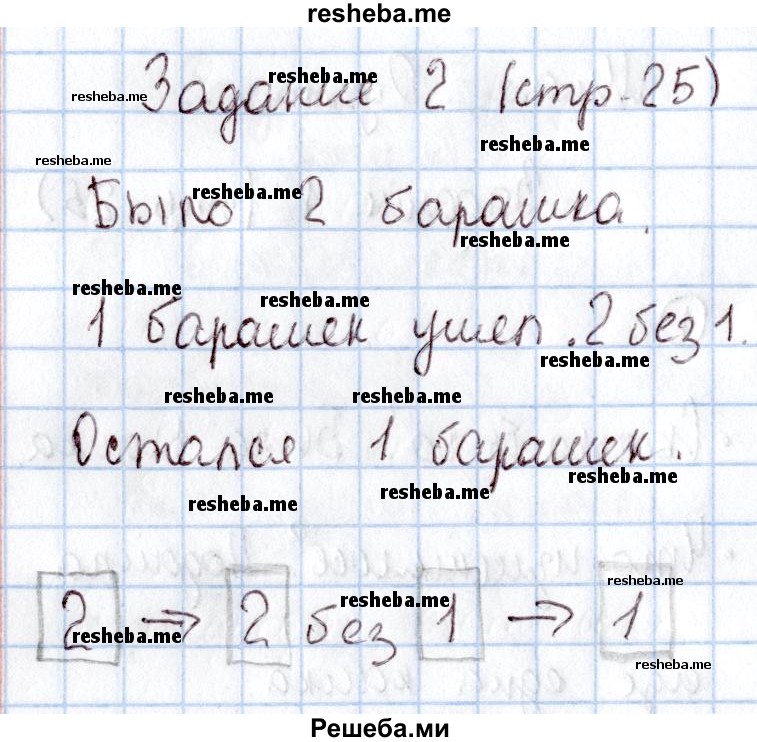 resheba.me
Задание 2 (стр. 25)
Было 2 барашка.
1 барашек ушел. 2 без 1.
Остался 1 барашек.
2 → 2 без 1 → 1
Решеба.ми